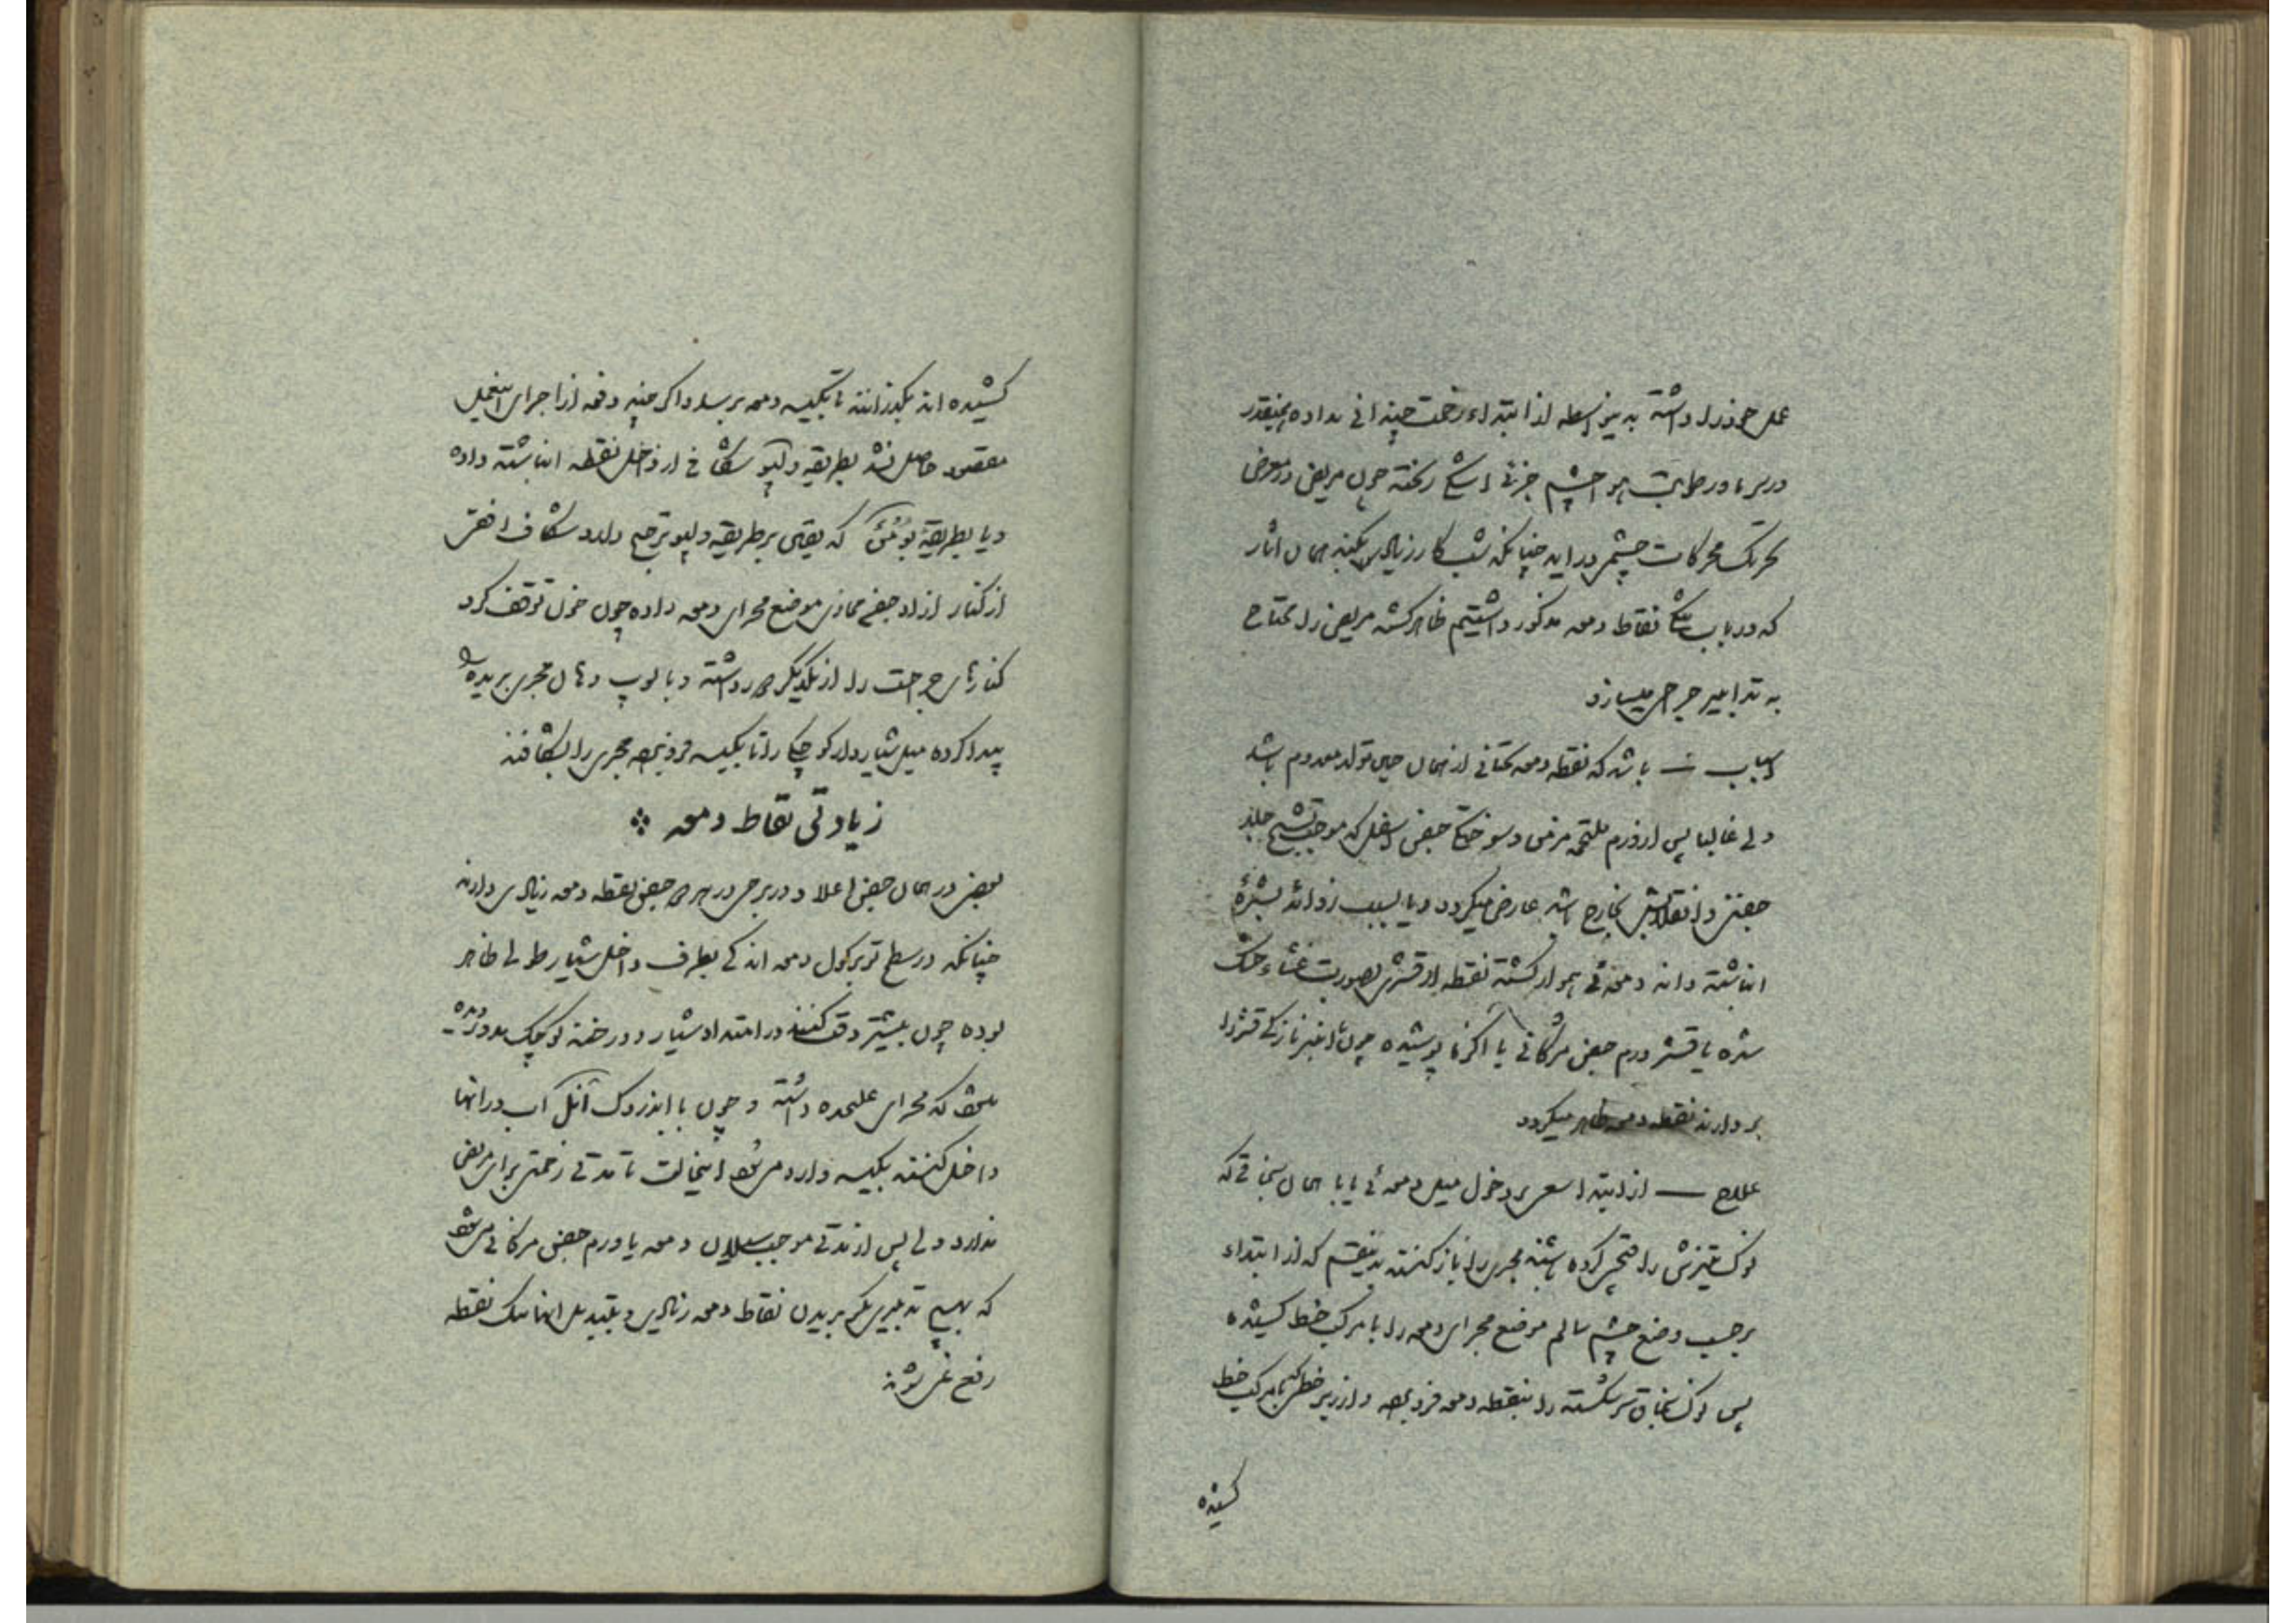 عمل خود را داشته بدینواسطه از ابتداء زحمت چندانی نداده همینقدر
در سرما و رطوبت هوا چشم جزئی اشک ریخته چون مریض در معرض
تحریک محرکات چشم در اید چنانکه شب کار زیادی بکند همان اثار
که در باب تنگی نقاط دمعه مذکور داشتیم ظاهر گشته مریض را محتاج
به تدابیر جراحی میسازد
اسباب باشد که نقطه دمعه تحتانی از همان حین تولد معدوم باشد
ولی غالبا پس از ورم ملتحمه مزمن و سوختگی جفن اسفل که موجب تشنج جلد
جفن و انقلابش بخارج باشد عارض میگردد و یا بسبب زوائد بشره
انباشته دانه دمعه‌ئی هموار گشته نقطه از قشری بصورت غشاء خشک
شده یا قشر ورم جفن مژگانی یا اگزما پوشیده چون با انبر نازکی قشر را
بردارند نقطه دمعه ظاهر میگردد
علاج — از ابتدا سعی بر دخول میل دمعه‌ئی یا با همان سنجاقی که
نوک تیزش را قچی کرده باشند مجری را باز کنند بدینقسم که از ابتداء
برحسب وضع چشم سالم موضع مجرای دمعه را با مرکب خط کشیده
پس نوک سنجاق سر شکسته را بنقطه دمعه فرو برده و از زیر خطی که با مرکب خط
کشیده
کشیده اند بگذرانند تا بکیسه دمعه برسد و اگر چند دفعه از اجرای اینعمل
مقصود حاصل نشد بطریقه ولپو شکافی از داخل نقطه انباشته داده
و یا بطریقه بومن که بعضی بر طریقه ولپو ترجیح دارد شکاف افقی
از کنار ازاد جفن محاذی موضع مجرای دمعه داده چون خون توقف کرد
کنارهای جراحت را از یکدیگر دور داشته و با لوپ دهان مجرای بریده را
پیدا کرده میل شیاردار کوچکی را تا بکیسه فرو برده مجری را بشکافند
زیادتی نقاط دمعه
بعضی در همان جفن اعلا و در برخی در هر دو جفن نقطه دمعه زیادی دارند
چنانکه در سطح توبرکول دمعه اندکی بطرف داخل شیار طولی ظاهر
بوده چون بیشتر دقت کنند در امتداد شیار دو رخنه کوچک مدور دیده
میشود که مجرای علیحده داشته و چون با ابزدوک آنل آب در انها
داخل کنند بکیسه وارد میشود اینحالت تا مدتی زحمتی برای مریض
ندارد ولی پس از مدتی موجب سیلان دمعه یا ورم جفن مژگانی میشود
که بهیچ تدبیری مگر بریدن نقاط دمعه زیادی و تبدیل انها بیک نقطه
رفع نمی شوند